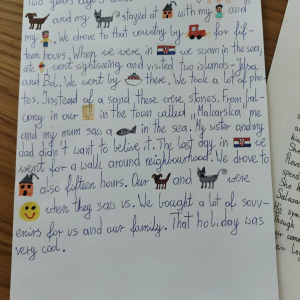 Two years ago
and my stayed at with my and
my We drove to that country by for fif-
teen hours. When we were in we swam in the sea,
ate went sightseeing and visited two islands-
and We went by there. We took a lot of pho-
tos. Instead of a sand, there were stones. From bal-
cony in our in the town called „Makarska, me
and my mum saw a in the sea. My sister and my
dad didn't want to belive it. The last day in we
went for a walk around neighbourhood. We drove to
also fifteen hours. Our and were
when they saw us. We bought a lot of souv-
enirs for us and our family. That holiday was
very cool.